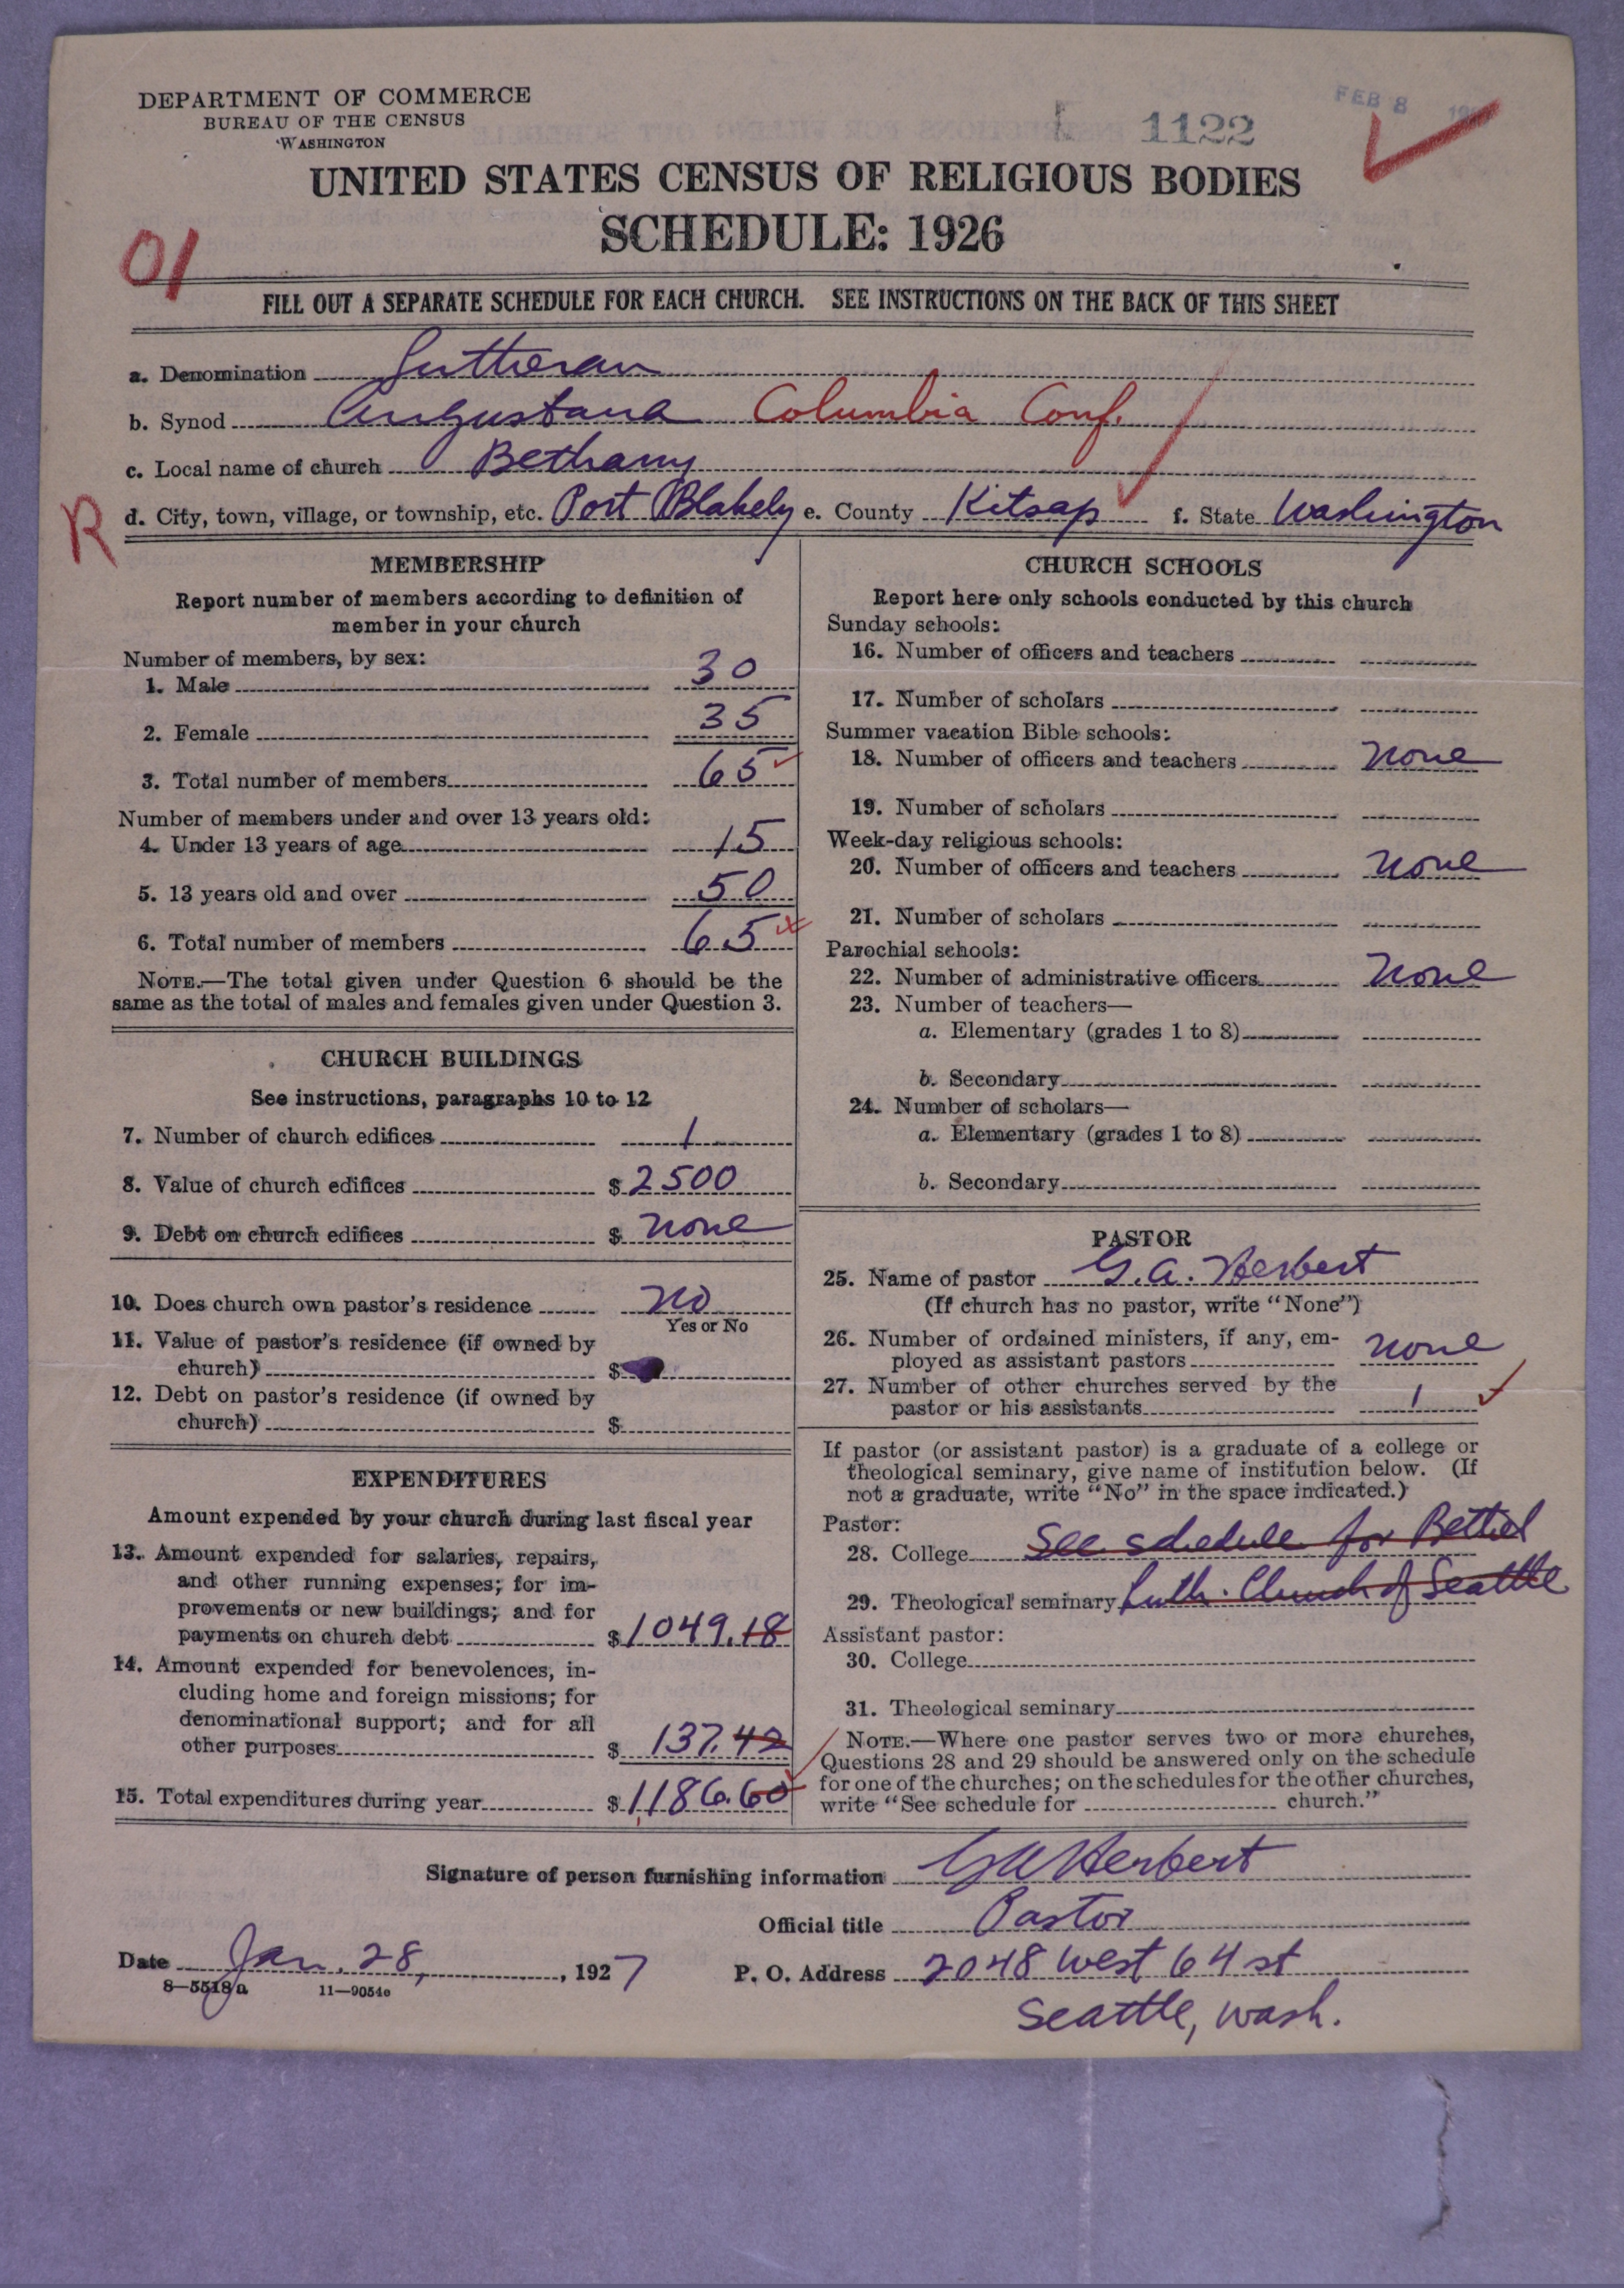 DEPARTMENT OF COMMERCE
BUREAU OF THE CENSUS
WASHINGTON
1122
FEB 8
UNITED STATES CENSUS OF RELIGIOUS BODIES
SCHEDULE: 1926
01
FILL OUT A SEPARATE SCHEDULE FOR EACH CHURCH. SEE INSTRUCTIONS ON THE BACK OF THIS SHEET
a. Denomination Lutheran
b. Synod Augustana Columbia Conf.
c. Local name of church Bethany
R
d. City, town, village, or township, etc. Port Blakely e. County Kitsap f. State Washington
MEMBERSHIP
Report number of members according to definition of
member in your church
Number of members, by sex:
1. Male 30
2. Female 35
3. Total number of members 65
Number of members under and over 13 years old:
4. Under 13 years of age 15
5. 13 years old and over 50
6. Total number of members 65
NOTE.—The total given under Question 6 should be the
same as the total of males and females given under Question 3.
CHURCH BUILDINGS
See instructions, paragraphs 10 to 12
7. Number of church edifices 1
8. Value of church edifices $ 2500
9. Debt on church edifices $ none
10. Does church own pastor's residence no
Yes or No
11. Value of pastor's residence (if owned by
church) $
12. Debt on pastor's residence (if owned by
church) $
EXPENDITURES
Amount expended by your church during last fiscal year
13. Amount expended for salaries, repairs,
and other running expenses; for im-
provements or new buildings; and for
payments on church debt $ 1049.18
14. Amount expended for benevolences, in-
cluding home and foreign missions; for
denominational support; and for all
other purposes $ 137.42
15. Total expenditures during year $ 1,186.60
CHURCH SCHOOLS
Report here only schools conducted by this church
Sunday schools:
16. Number of officers and teachers
17. Number of scholars
Summer vacation Bible schools:
18. Number of officers and teachers none
19. Number of scholars
Week-day religious schools:
20. Number of officers and teachers none
21. Number of scholars
Parochial schools:
22. Number of administrative officers none
23. Number of teachers—
a. Elementary (grades 1 to 8)
b. Secondary
24. Number of scholars—
a. Elementary (grades 1 to 8)
b. Secondary
PASTOR
25. Name of pastor G. A. Herbert
(If church has no pastor, write "None")
26. Number of ordained ministers, if any, em-
ployed as assistant pastors none
27. Number of other churches served by the
pastor or his assistants 1
If pastor (or assistant pastor) is a graduate of a college or
theological seminary, give name of institution below. (If
not a graduate, write "No" in the space indicated.)
Pastor:
28. College See schedule for Bethel
29. Theological seminary Luth. Church of Seattle
Assistant pastor:
30. College
31. Theological seminary
NOTE.—Where one pastor serves two or more churches,
Questions 28 and 29 should be answered only on the schedule
for one of the churches; on the schedules for the other churches,
write "See schedule for church."
Signature of person furnishing information GA Herbert
Official title Pastor
Date Jan. 28, , 1927
P. O. Address 2048 West 64 st
Seattle, Wash.
8—5518a 11—9054e